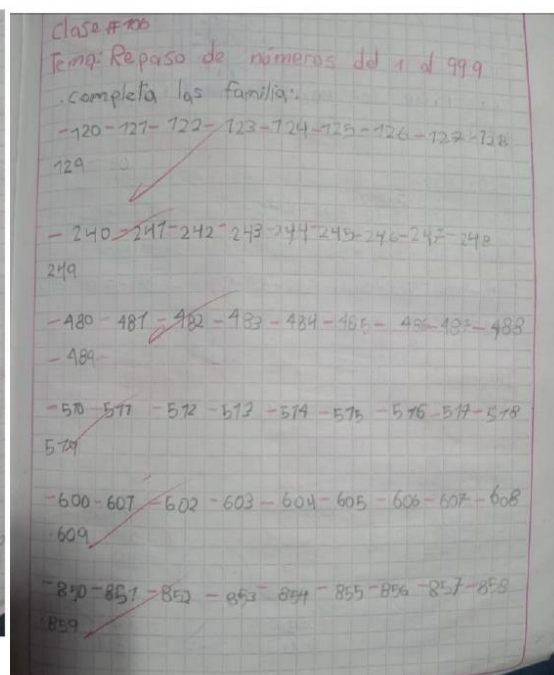 Clase #106
Tema: Repaso de números del 1 al 999
.completa las familia:.
-120-121-122-123-124-125-126-127-128
129
-240-241-242-243-244-245-246-247-248
249
-480-481-482-483-484-485-486-487-488
-489
-510-511-512-513-514-515-516-517-518
519
-600-601-602-603-604-605-606-607-608
.609
-850-851-852-853-854-855-856-857-858
.859